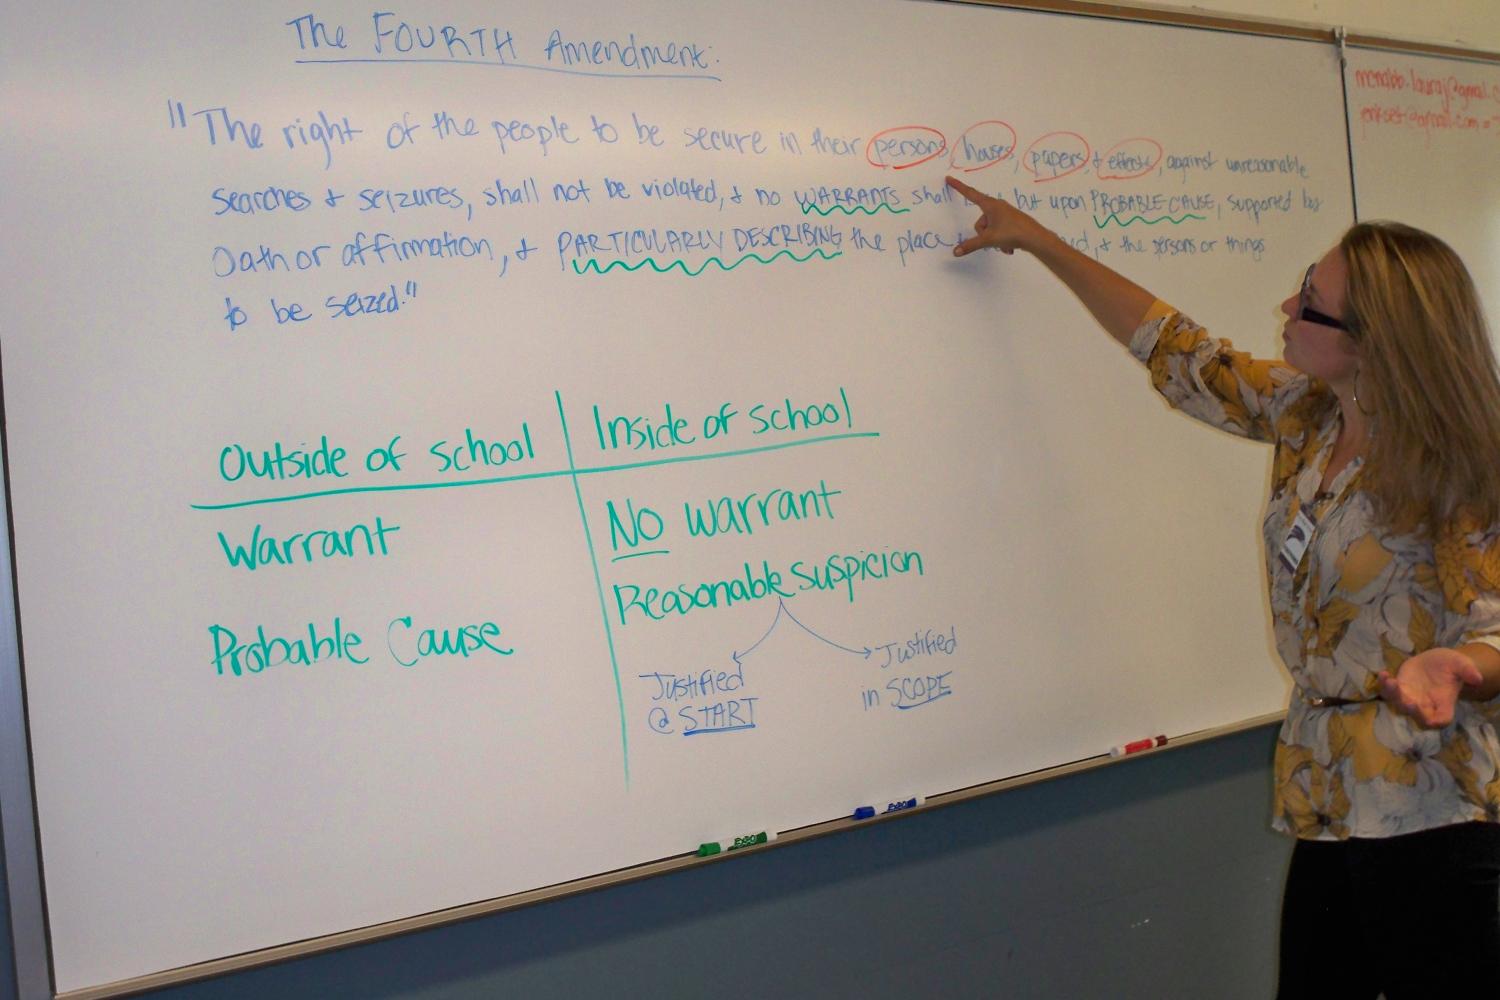 The FOURTH Amendment:
"The right of the people to be secure in their persons, houses, papers, + effects, against unreasonable
searches + seizures, shall not be violated, + no WARRANTS shall but upon PROBABLE CAUSE, supported by
Oath or affirmation, + PARTICULARLY DESCRIBING the place + the persons or things
to be seized."
Outside of school
Inside of school
Warrant
Probable Cause
NO warrant
Reasonable suspicion
Justified
@ START
Justified
in SCOPE
EXPO
EXPO